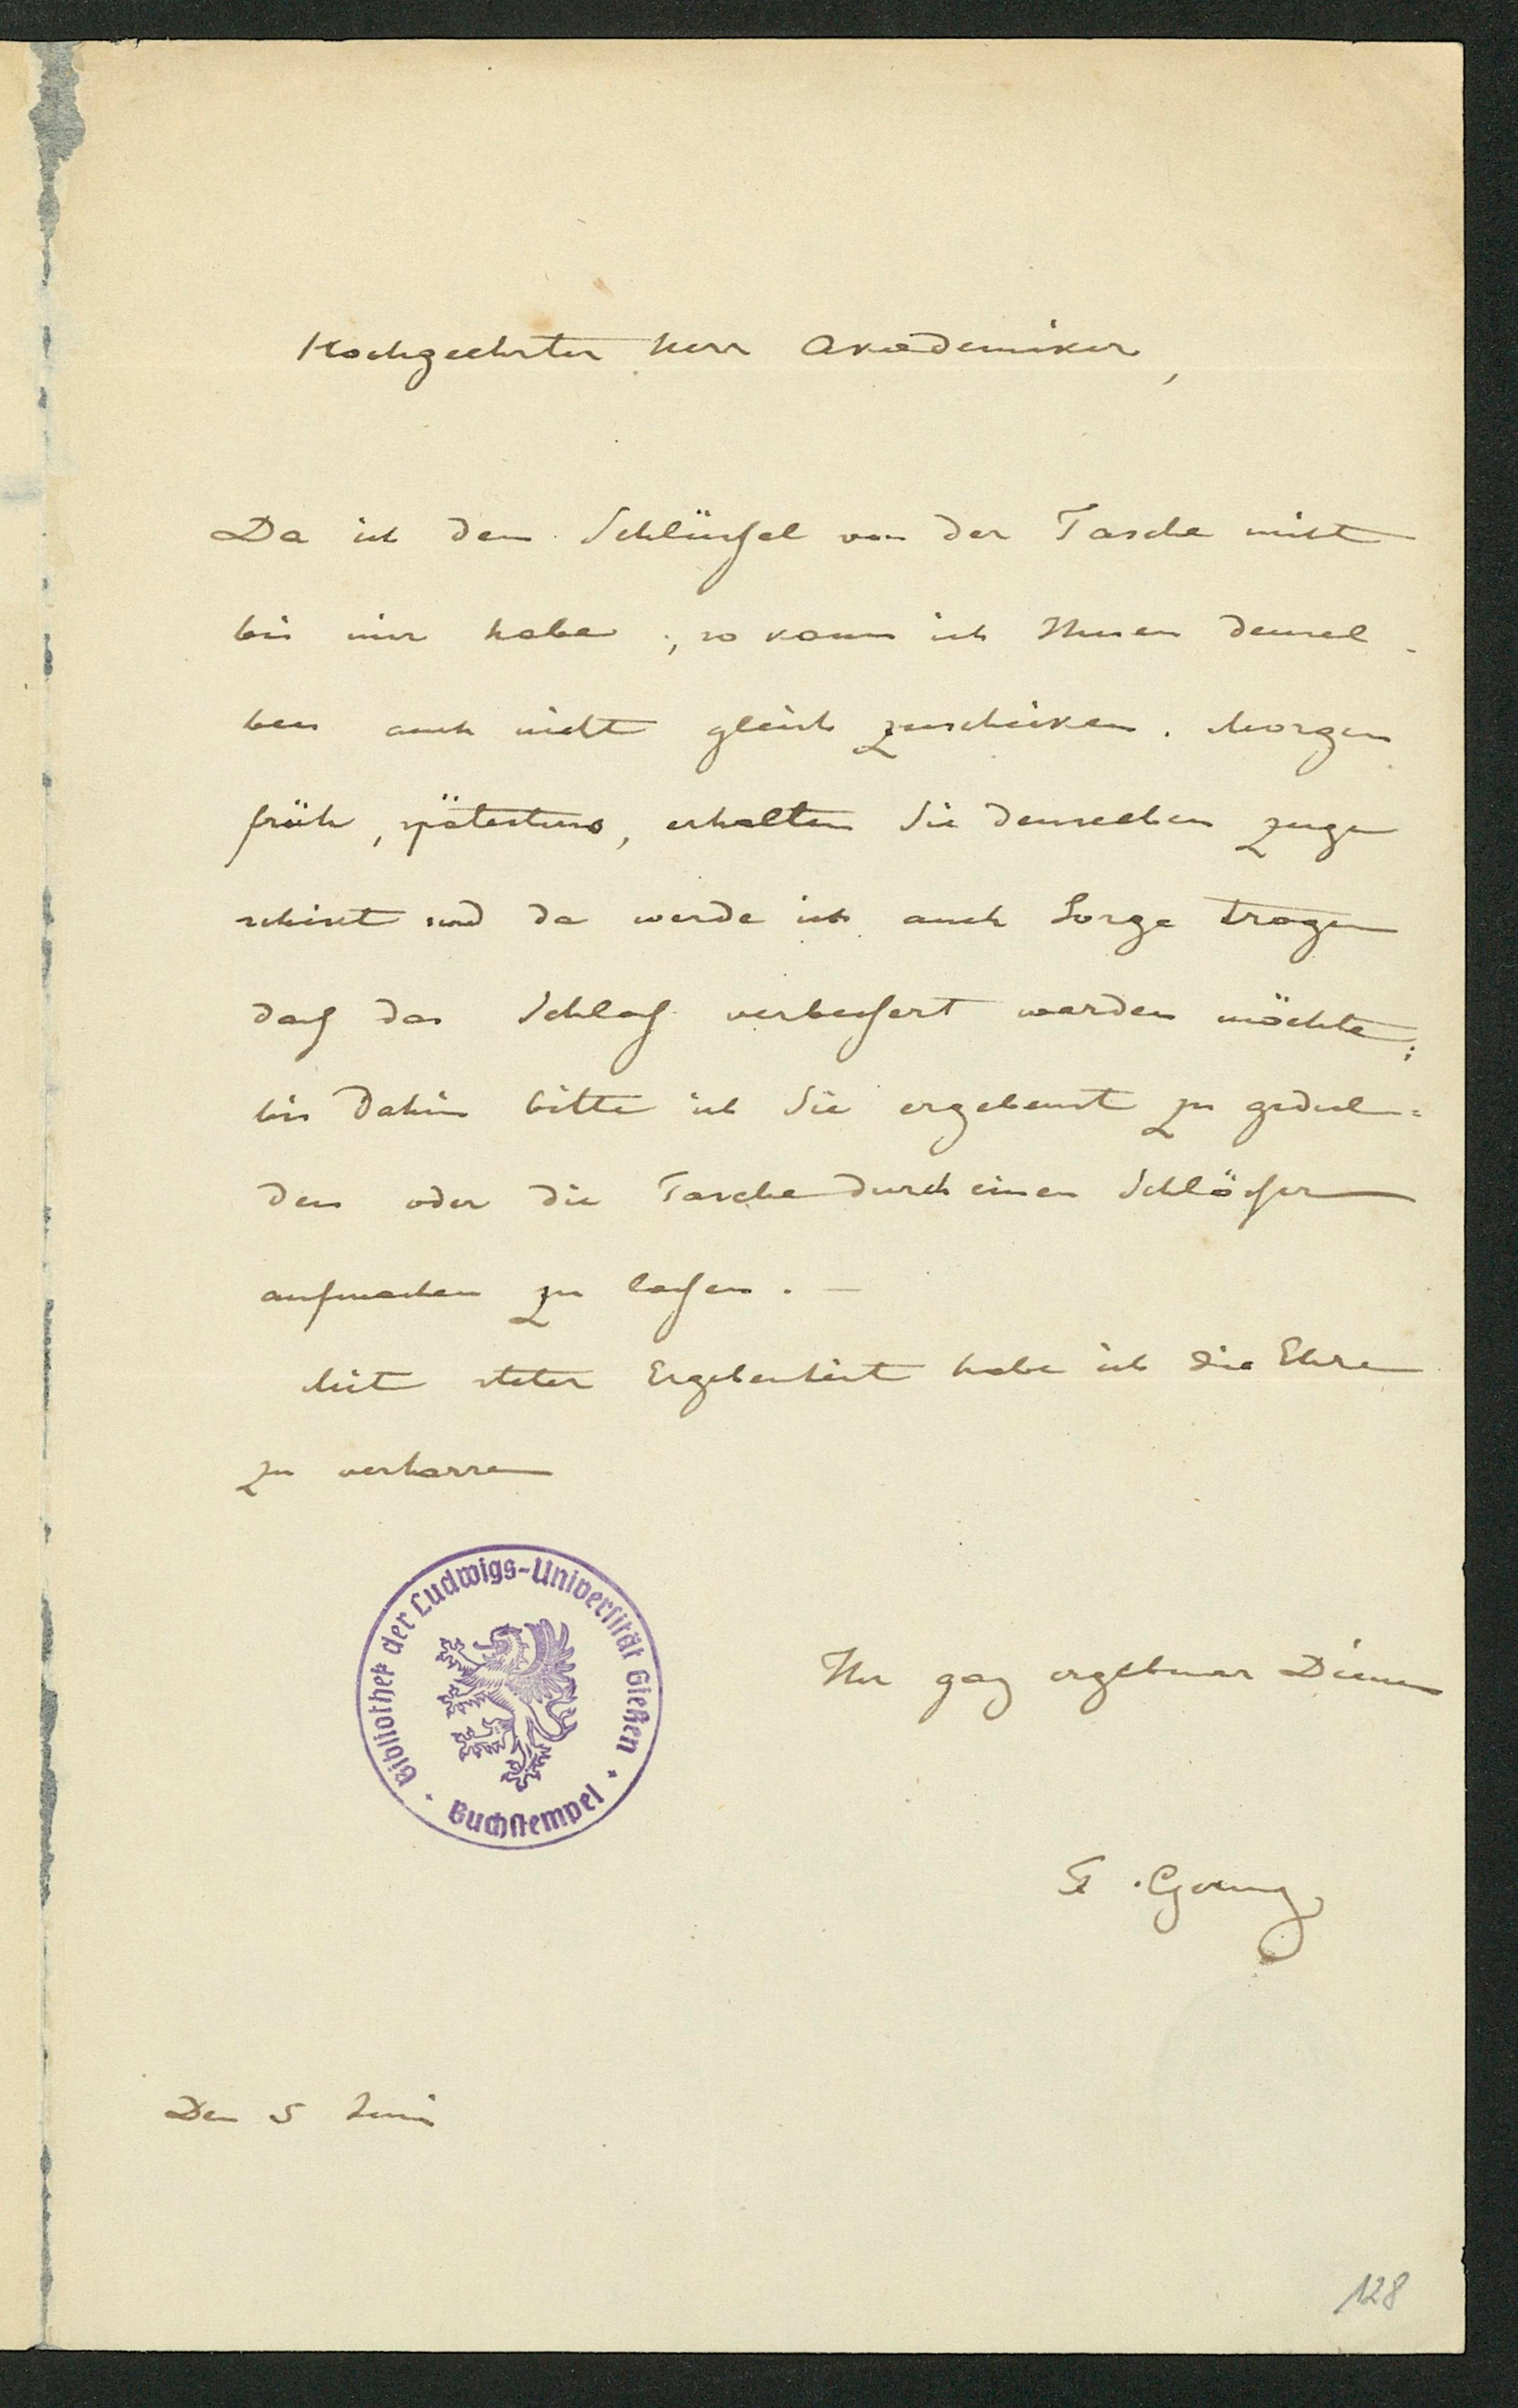 Hochgeehrter Herr Akademiker,
Da ich den Schlüssel von der Tasche nicht
bei mir habe, so kann ich Ihnen densel-
ben auch nicht gleich zuschiken. Morgen
früh, spätestens, erhalten Sie denselben zuge
schikt und da werde ich auch Sorge tragen
daß das Schloß verbessert werden möchte;
bis dahin bitte ich Sie ergebenst zu gedul=
den oder die Tasche durch einen Schlösser
aufmachen zu lassen. —
Mit steter Ergebenheit habe ich die Ehre
zu verharren
Bibliothek der Ludwigs-Universität Gießen
Buchstempel
Ihr ganz ergebener Diener
Den 5 Juni
128